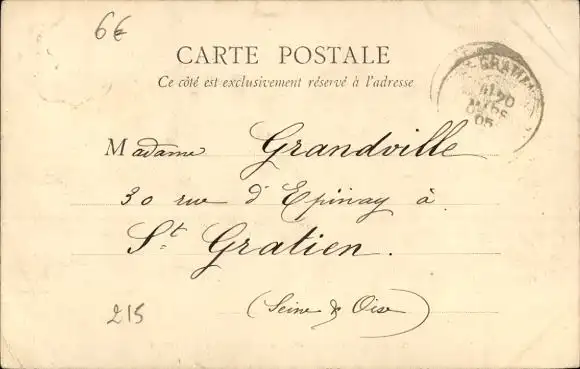 6€
CARTE POSTALE
Ce côté est exclusivement réservé à l'adresse
GRATIEN
20
MARS
05
Madame Grandville
30 rue d'Epinay à
St Gratien.
(Seine & Oise)
215